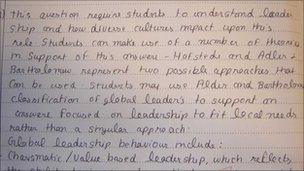 this question require students to understand leader
ship and how diverse cultures impact upon this
role. Students can make use of a number of theories
in support of this answers - Hofstede and Adler &
Bartholomew represent two possible approaches that
Can be used. Students may use Alder and Bartholomew
classification of global leaders to support an
answers focused on leadership to fit local needs
rather than a singular approach.
Global leadership behaviour include:
Charismatic / Value based leadership, which reflects